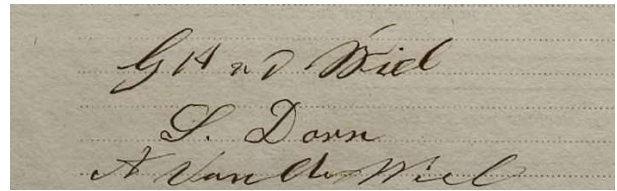 G H v d Wiel
S. Dorn
A Van der Wiel